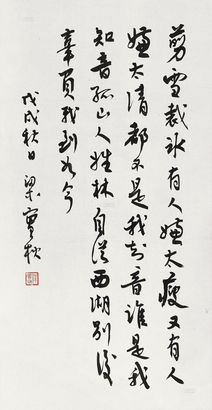 剪雪裁冰有人嫌太瘦又有人
嫌太清都不是我知音谁是我
知音孤山人姓林自从西湖别后
辜负我到如今
戊戌秋日 梁实秋